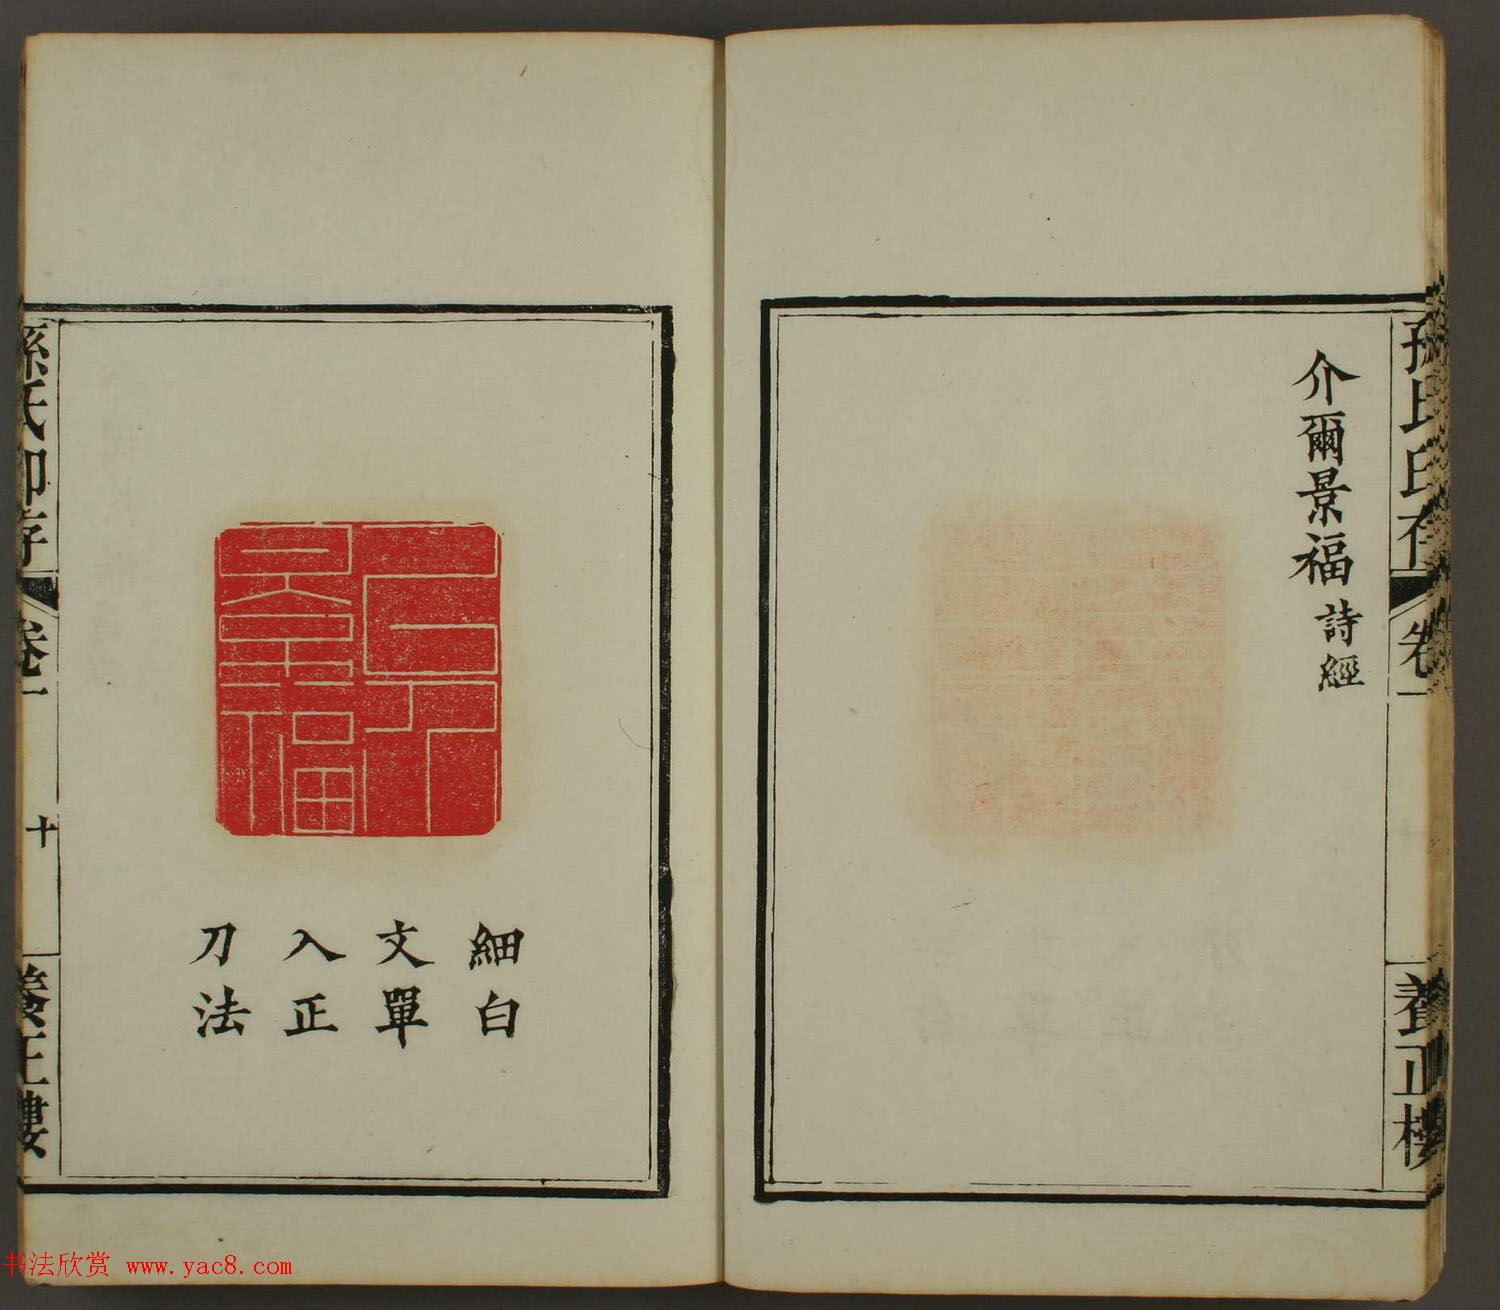 孫氏印存 卷一 養正樓
介爾景福 詩經
細白
文單
入正
刀法
孫氏印存 卷一 十 養正樓
书法欣赏 www.yac8.com